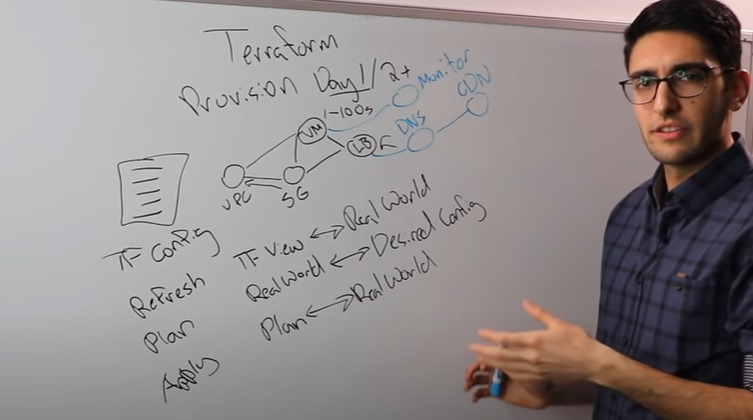 Terraform
Provision Day 1/2+
Monitor
CDN
1-100s
DNS
VM
LB
VPC
SG
TF Config
Refresh TF View ↔ Real World
Plan Real World ↔ Desired Config
Apply Plan ↔ Real World